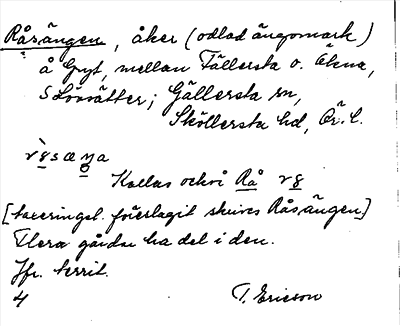 Råsängen, åker (odlad ängsmark)
å Gryt, mellan Tällersta o. Ökna,
S Lövsätter; Gällersta sn,
Sköllersta hd, Ör. l.
Kallas också Rå
[taxeringsl. föreslagit skrivs Råsängen]
Flera gårdar ha del i den.
Jfr. territ.
4 T. Ericson